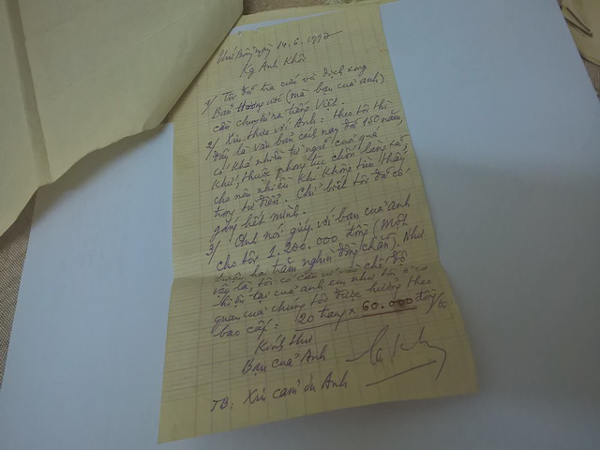 ngày 14.6.1997
Kg Anh Khôi
1/ Tôi đã tra cứu và dịch xong
Bản Hương ước (mà bạn của anh)
cần chuyển ra tiếng Việt.
2/ Xin thưa với Anh: theo tôi thì
đây là văn bản cách nay đã 150 năm,
có khá nhiều từ ngữ của quá
khứ, thuộc phong tục chốn làng xã
cho nên nhiều khi không tìm thấy
trong từ điển. Chỉ biết tôi đã cố
gắng hết mình.
3/ Anh nói giúp với bạn của anh
cho tôi 1.200.000 đồng (Một
triệu hai trăm nghìn đồng chẵn). Như
vậy là, tôi có căn cứ vào chế độ
hiện tại của anh em như tôi ở cơ
quan của chúng tôi được hưởng theo
bao cấp: 20 trang x 60.000 đồng
Kính thư
Bạn của Anh
TB: Xin cảm ơn Anh